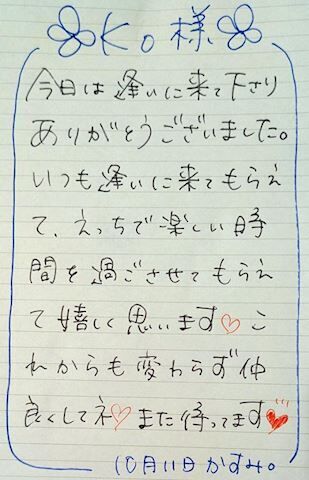 Ko様
今日は逢いに来て下さり
ありがとうございました。
いつも逢いに来てもらえ
て、えっちで楽しい時
間を過ごさせてもらえ
て嬉しく思います♡こ
れからも変わらず仲
良くしてネ♡また待ってます♥
10月11日かすみ。